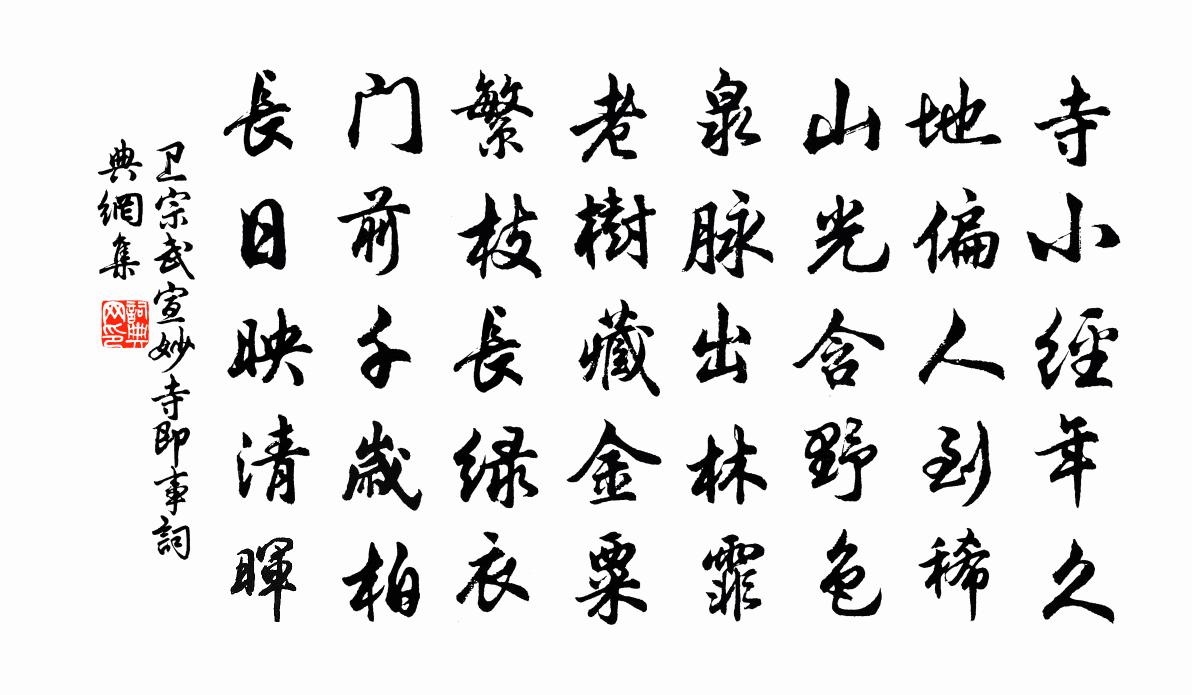 寺小經年久
地偏人到稀
山光含野色
泉脉出林霏
老樹藏金粟
繁枝長绿衣
门前千歲柏
長日映清暉
卫宗武宣妙寺即事詞
典網集
詞典网印